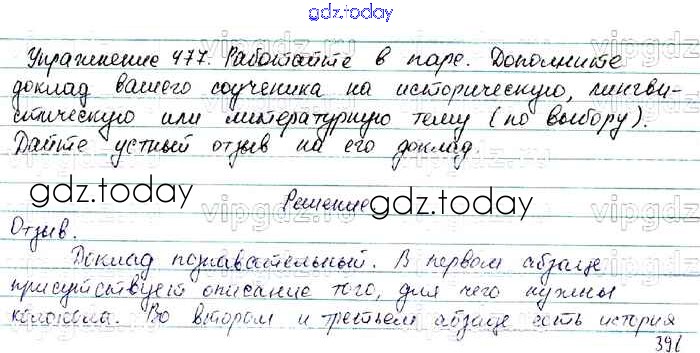 gdz.today
Упражнение 477. Работайте в паре. Дополните
доклад вашего соученика на историческую, лингви-
стическую или литературную тему (по выбору).
Дайте устный отзыв на его доклад.
gdz.today
Решение
gdz.today
Отзыв.
Доклад познавательный. В первом абзаце
присутствует описание того, для чего нужны
колокола. Во втором и третьем абзаце есть история
391